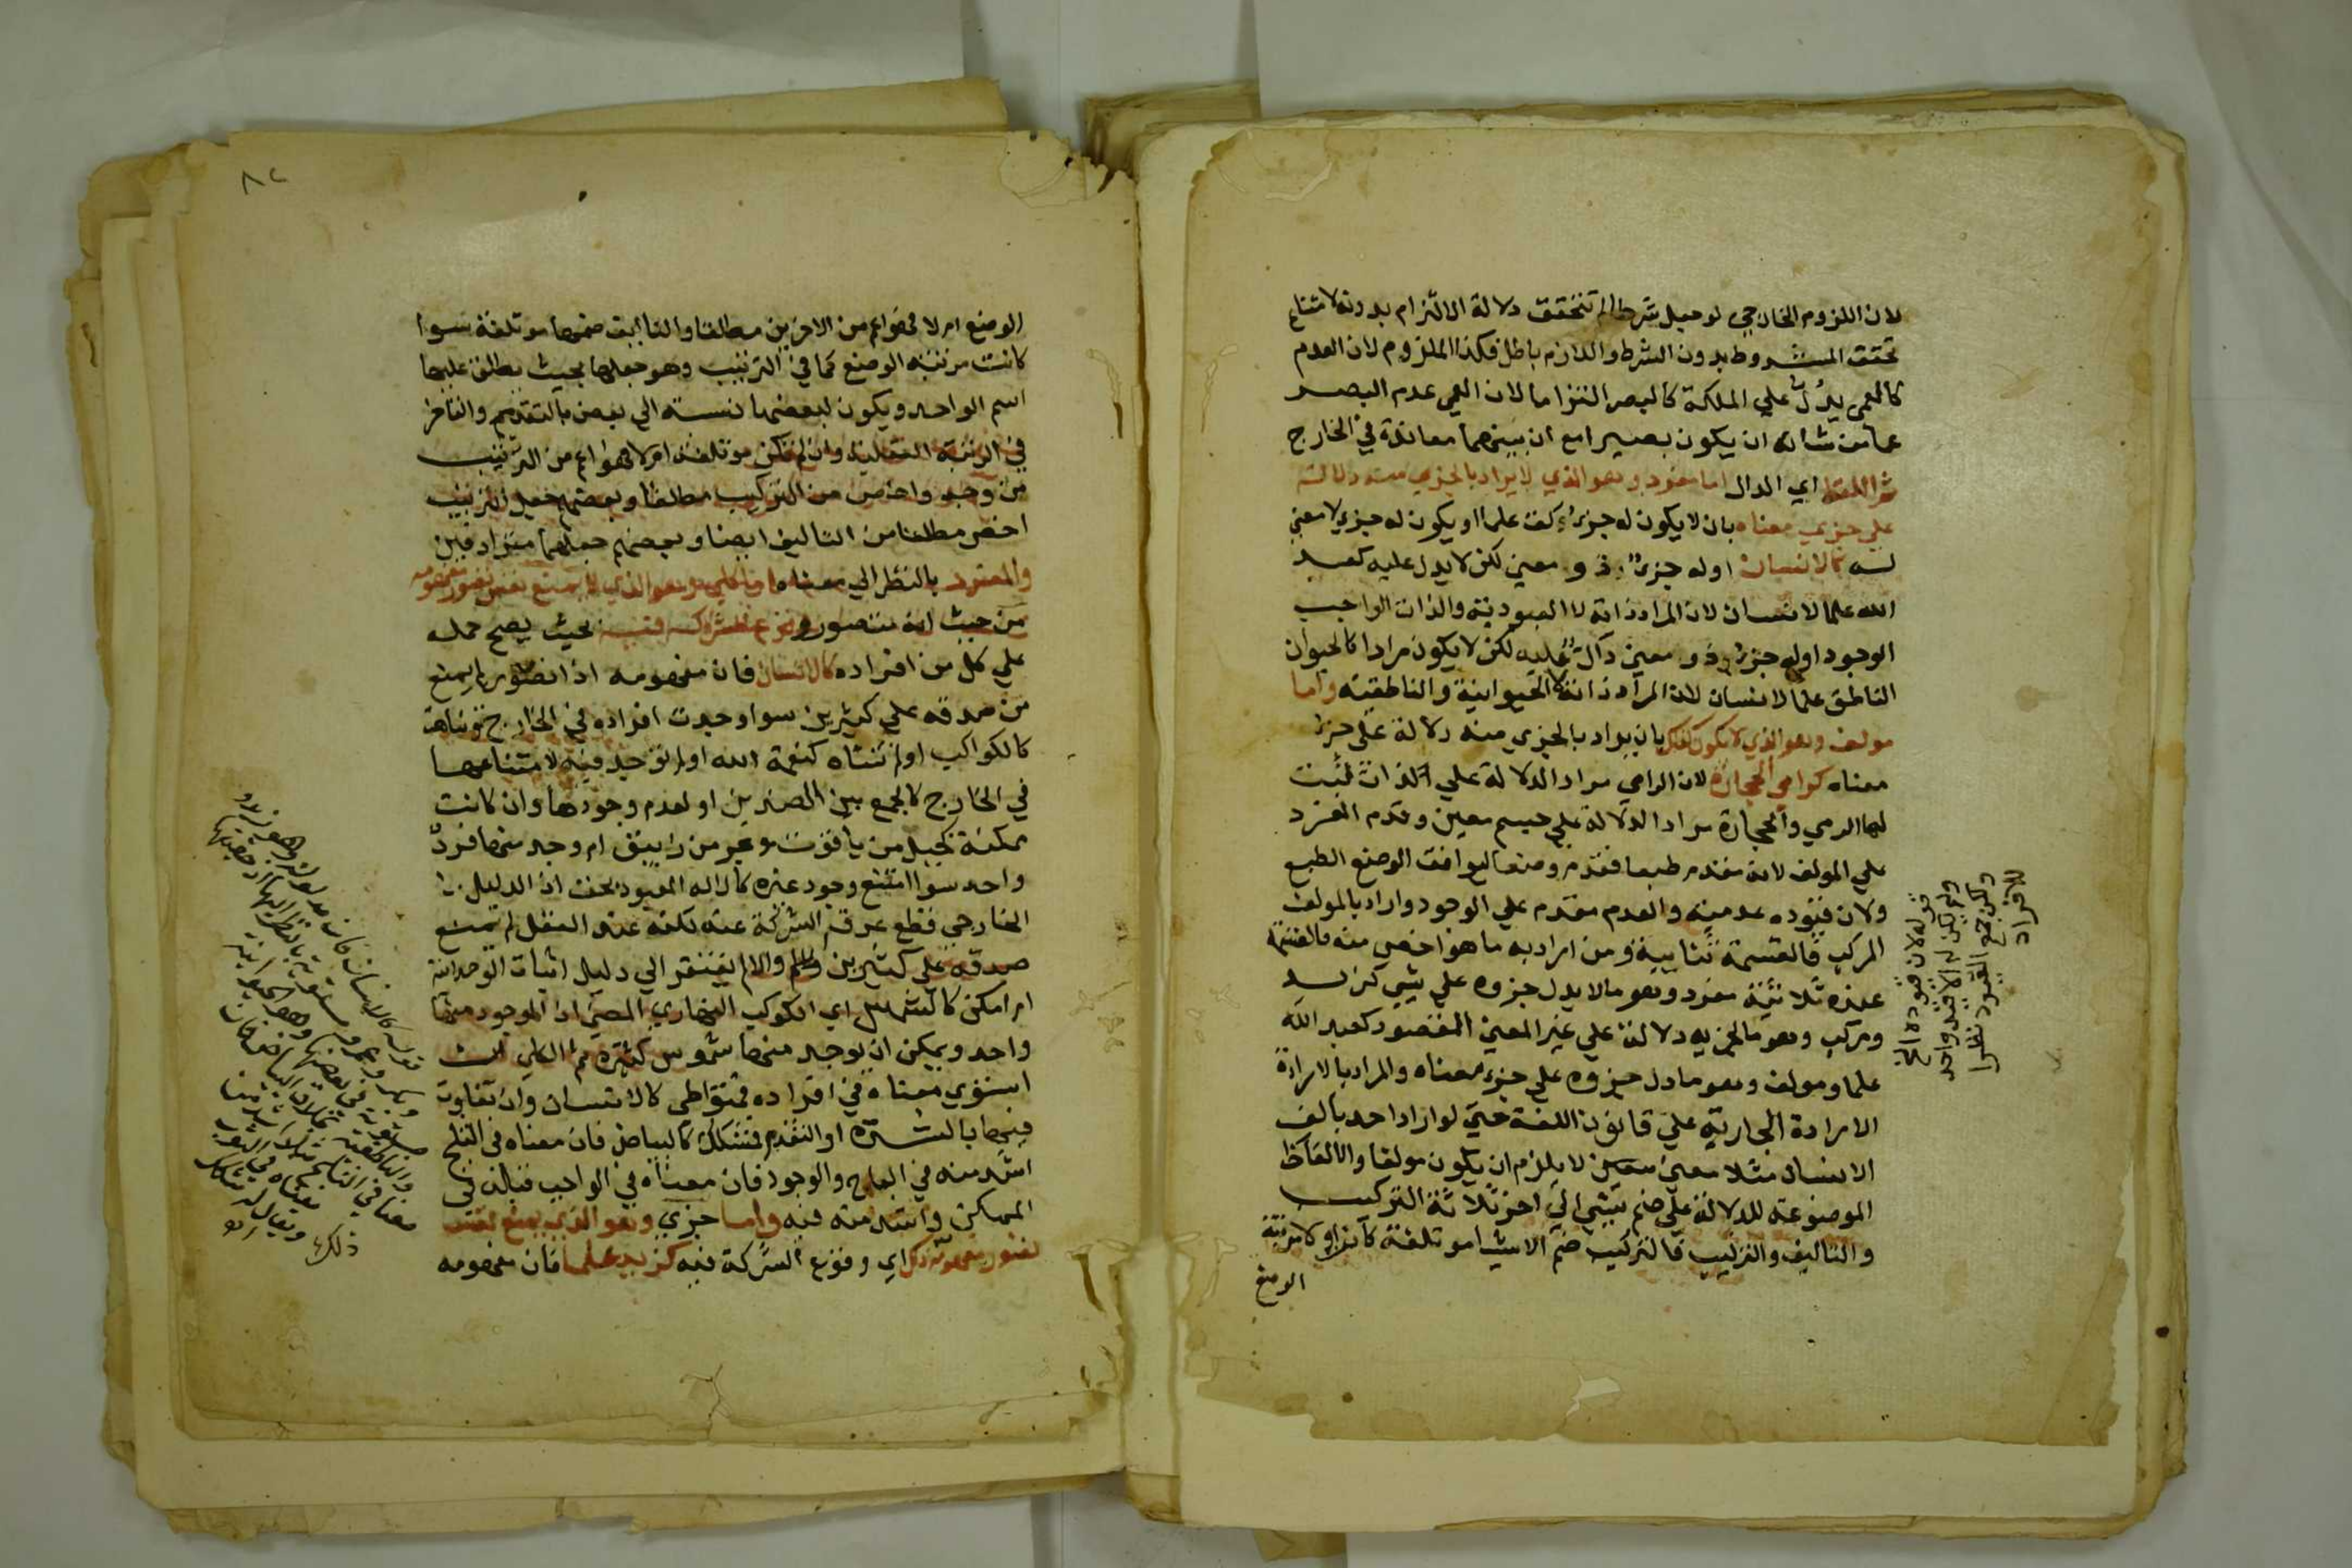 لان اللزوم الخارجي لو جعل شرطا لم تتحقق دلالة الالتزام بدونه لامتناع
تحقق المشروط بدون الشرط واللازم باطل فكذا الملزوم لان العدم
كالعمى يدل على الملكة كالبصر التزاما لان العمي عدم البصر
عما من شانه ان يكون بصيرا مع ان بينهما معاندة في الخارج
ثم اللفظ اي الدال اما مفرد وهو الذي لا يراد بالجزي منه دلالة
علي جزي معناه بان لا يكون له جزء كق علما او يكون له جزي لا معني
له كالانسان اوله جزء ذو معني لكن لا يدل عليه كعبد
الله علما لانسان لان المراد ذاته لا العبودية والذات الواجب
الوجود اوله جزء ذو معني دال عليه لكن لا يكون مرادا كالحيوان
الناطق علما لانسان لان المراد ذاته لا الحيوانية والناطقية واما
مولف وهو الذي لا يكون كذلك بان يراد بالجزي منه دلالة على جزء
معناه كرامي الحجارة لان الرامي مراد الدلالة علي الذات ثبت
لها الرمي والحجارة مراد الدلالة علي جسم معين وقدم المفرد
علي المولف لانه مقدم طبعا فقدم وضعا ليوافق الوضع الطبع
ولان قيوده عدمية والعدم مقدم علي الوجود واراد بالمولف
المركب فالقسمة ثنايية ومن اراد به ما هو اخص منه فالقسمة
عنده ثلاثية مفرد وهو ما لا يدل جزوه علي شي كزيد
ومركب وهو ما لجزيه دلالة علي غير المعني المقصود كعبد الله
علما ومولف وهو ما دل جزوه علي جزء معناه والمراد بالارادة
الارادة الجارية علي قانون اللغة حتي لو اراد احد بالف
الانسان مثلا معني معين لا يلزم ان يكون مولفا والالفاظ
الموضوعة للدلالة علي ضم شي الي اخر ثلاثة التركيب
والتاليف والترتيب فالتركيب ضم الاشيا موتلفة كانت او لا مرتبة
الوضع
قوله لان قيوده الخ
ولم يكن له الا قيد واحد
ولكن جمع القيود نظرا
للافراد
٨٢
الوضع ام لا فهو اعم من الاخرين مطلقا والتاليف ضمها موتلفة سوا
كانت مرتبة الوضع كما في الترتيب وهو جعلها بحيث يطلق عليها
اسم الواحد ويكون لبعضها نسبة الي بعض بالتقدم والتاخر
في الرتبة العقلية وان لم تكن موتلفة ام لا فهو اعم من الترتيب
من وجه واخص من التركيب مطلقا وبعضهم جعل الترتيب
اخص مطلقا من التاليف ايضا وبعضهم جعلهما مترادفين
والمفرد بالنظر الي معناه اما كلي وهو الذي لا يمنع نفس تصور مفهومه
من حيث انه متصور وقوع الشركة فيه بحيث يصح حمله
علي كل من افراده كالانسان فان مفهومه اذا تصور لم يمنع
من صدقه علي كثيرين سوا وجدت افراده في الخارج وتناهت
كالكواكب او لم تتناه كنعمة الله او لم توجد فيه لامتناعها
في الخارج كالجمع بين الضدين او لعدم وجودها وان كانت
ممكنة كجبل من ياقوت وبحر من زيبق ام وجد منها فرد
واحد سوا امتنع وجود غيره كالاله المعبود بحق اذ الدليل
الخارجي قطع عرق الشركة عنه لكنه عند العقل لم يمنع
صدقه علي كثيرين والا لم يفتقر الي دليل اثبات الوحدانية
ام امكن كالشمس اي الكوكب النهاري المضي اذ الموجود منها
واحد ويمكن ان يوجد منها شموس كثيرة ثم الكلي ان
استوي معناه في افراده فمتواطي كالانسان وان تفاوت
فيها بالشدة او التقدم فمشكك كالبياض فان معناه في الثلج
اشد منه في العاج والوجود فان معناه في الواجب قبله في
الممكن واشد منه فيه واما جزي وهو الذي يمنع نفس
تصور مفهومه ذلك اي وقوع الشركة فيه كزيد علما فان مفهومه